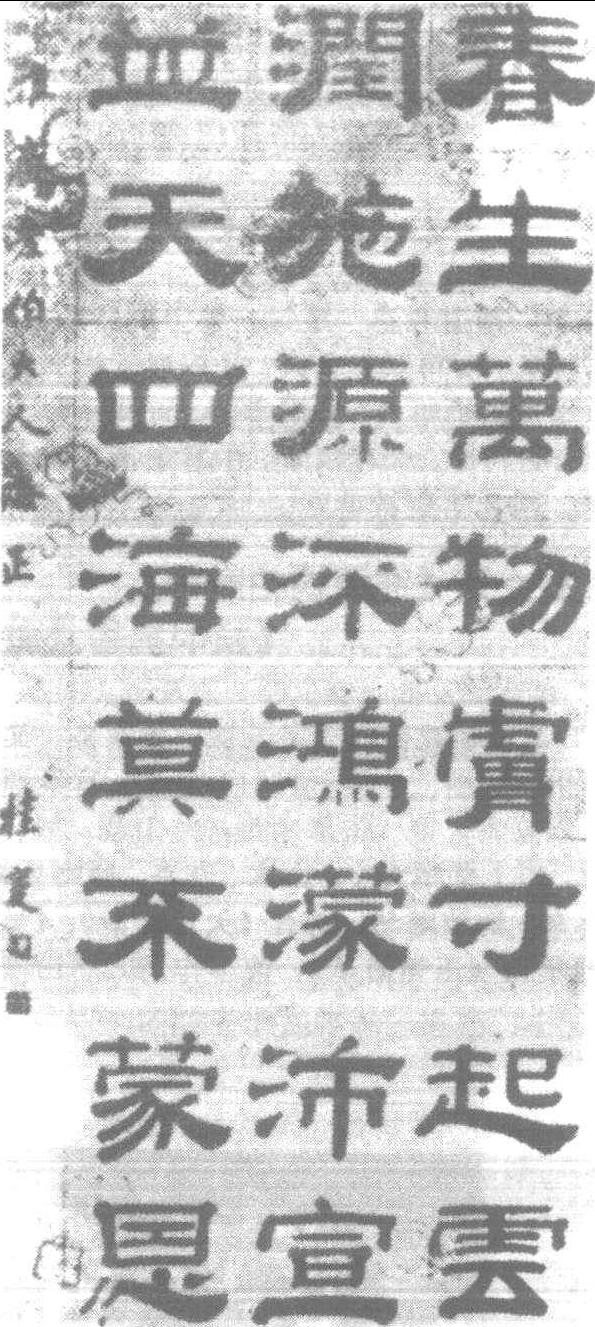 春生萬物膚寸起雲
潤施源流鴻濛沛宣
並天四海莫不蒙恩
伯大人正
桂